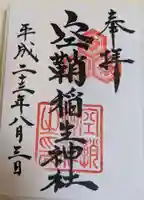 奉拝
空鞘稲生神社
平成二十三年八月三日